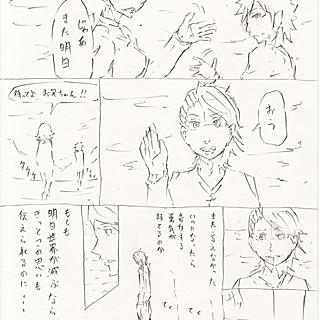 じゃあ
また明日
おう
待ってよ お兄ちゃん!!
タタタ
また言えなかった…
いつになったら
告白する
勇気が
持てるのか
てく
てく
もしも
明日世界が滅ぶなら
きっとこの思いも
伝えられるのに…